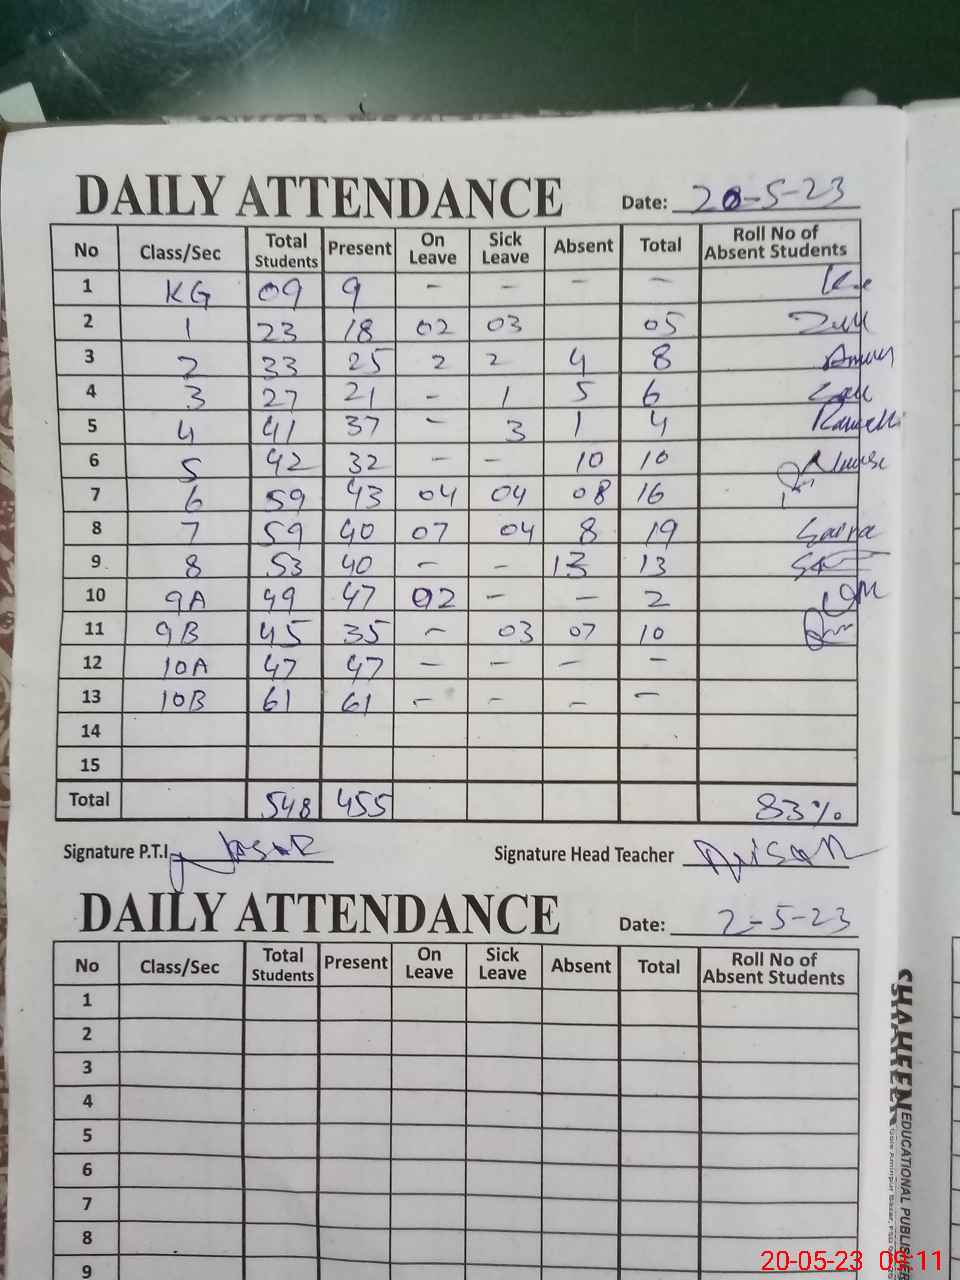 DAILY ATTENDANCE Date: 20-5-23
No Class/Sec Total Students Present On Leave Sick Leave Absent Total Roll No of Absent Students
1 KG 09 9 - - - -
2 1 23 18 02 03 05
3 2 33 25 2 2 4 8
4 3 27 21 - 1 5 6
5 4 41 37 - 3 1 4
6 5 42 32 - - 10 10
7 6 59 43 04 04 08 16
8 7 59 40 07 04 8 19 Saira
9 8 53 40 - - 13 13
10 9A 49 47 02 - - 2
11 9B 45 35 - 03 07 10
12 10A 47 47 - - - -
13 10B 61 61 - - - -
14
15
Total 548 455 83%
Signature P.T.I Signature Head Teacher
DAILY ATTENDANCE Date: 2-5-23
No Class/Sec Total Students Present On Leave Sick Leave Absent Total Roll No of Absent Students
1
2
3
4
5
6
7
8
9
SHAHEEN
EDUCATIONAL PUBLISHER
20-05-23 09:11